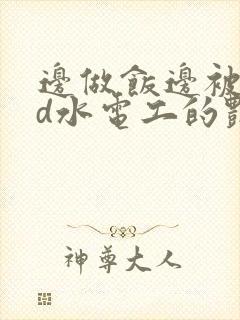 邊做飯邊被
d水電工的
神尊大人